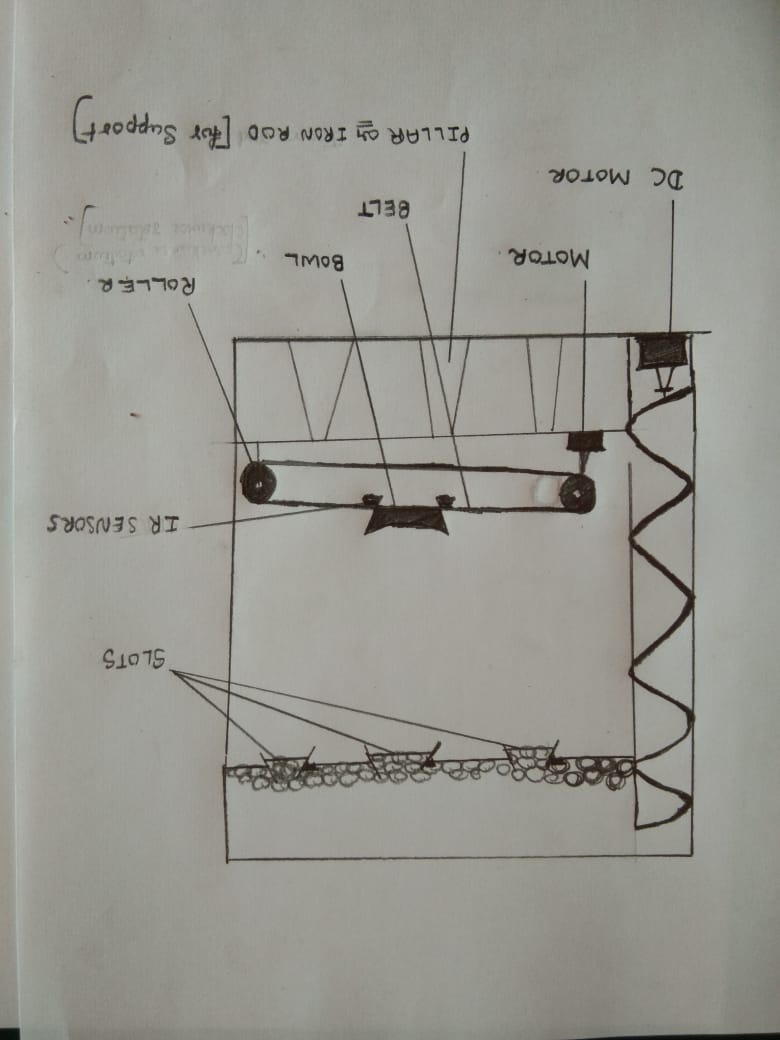 SLOTS
IR SENSORS
ROLLER.
MOTOR.
BOWL.
BELT
DC MOTOR
PILLAR or IRON ROD [for Support]